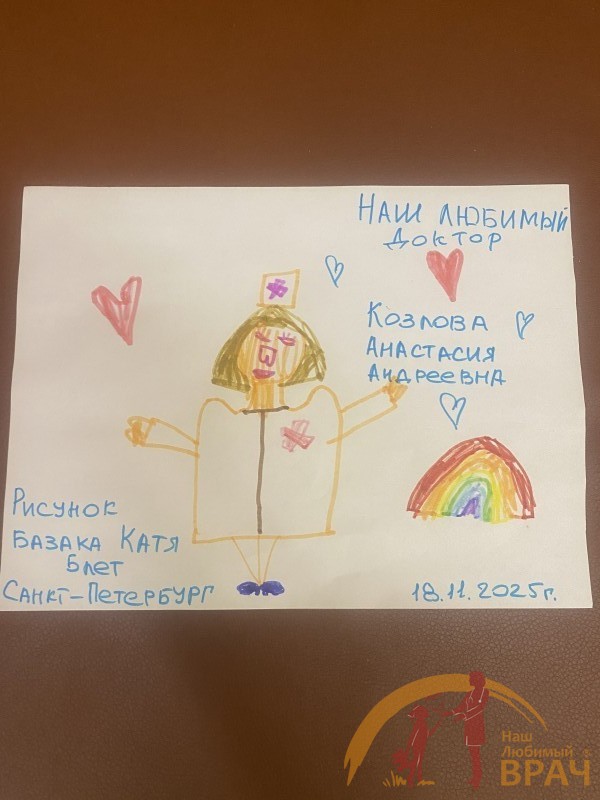 НАШ ЛЮБИМЫЙ
ДОКТОР
КОЗЛОВА
АНАСТАСИЯ
АНДРЕЕВНА
РИСУНОК
БАЗАКА КАТЯ
5 лет
САНКТ-ПЕТЕРБУРГ
18.11.2025г.
Наш
Любимый
ВРАЧ